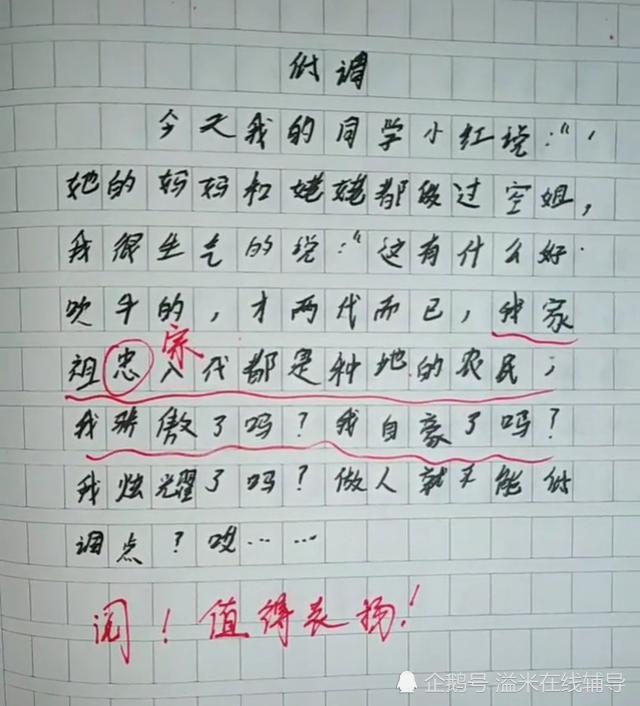 低调
今天我的同学小红说:"
她的妈妈和姥姥都做过空姐,
我很生气的说:"这有什么好
吹牛的,才两代而已,我家
宗
祖忠八代都是种地的农民;
我骄傲了吗?我自豪了吗?
我炫耀了吗?做人就不能低
调点?哎……
阅!值得表扬!
企鹅号 溢米在线辅导